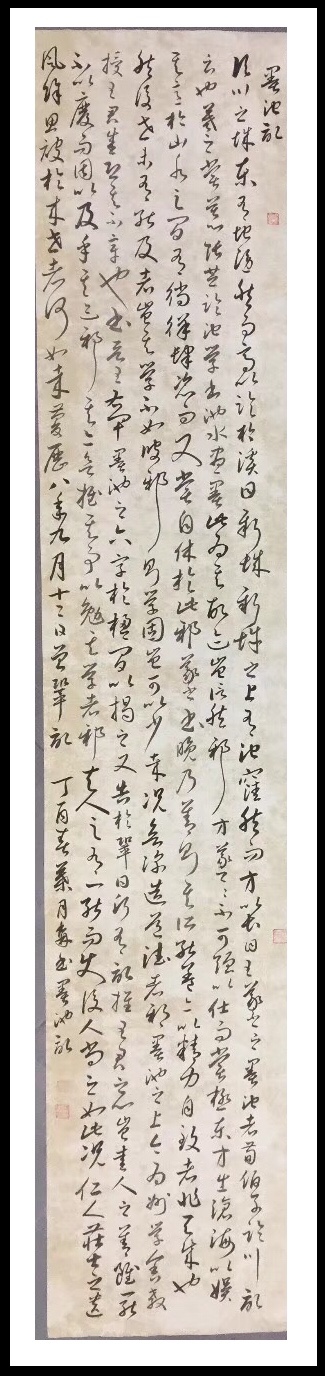 墨池記
臨川之城東有地隱然而高以臨於溪曰新城新城之上有池窪然而方以長曰王羲之之墨池者荀伯子臨川記
云也羲之嘗慕張芝臨池學書池水盡黑此為其故跡豈信然邪方羲之之不可強以仕而嘗極東方出滄海以娛
其意於山水之間有徜徉肆恣而又嘗自休於此邪羲之書晚乃善則其所能蓋亦以精力自致者非天成也
然後世未有能及者豈其學不如彼邪則學固豈可以少哉況欲深造道德者邪墨池之上今為州學舍教
授王君盛恐其不章也書晉王右軍墨池之六字於楹間以揭之又告於鞏曰願有記推王君之心豈愛人之善雖一能
不以廢而因以及乎其跡邪其亦欲推其事以勉其學者邪夫人之有一能而使後人尚之如此況仁人莊士之遺
風餘思被於來世者何如哉慶曆八年九月十二日曾鞏記 丁酉春月書墨池記